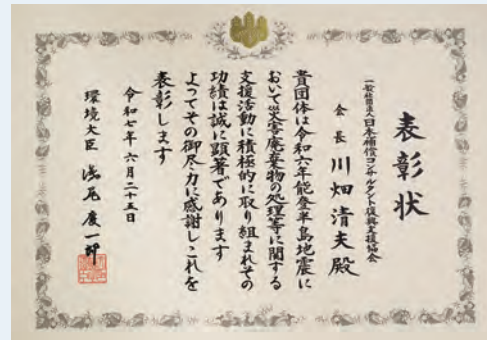 表彰状
一般社団法人日本補償コンサルタント復興支援協会
会長 川畑清夫殿
貴団体は令和六年能登半島地震に
おいて災害廃棄物の処理等に関する
支援活動に積極的に取り組まれその
功績は誠に顕著であります
よってその御尽力に感謝しこれを
表彰します
令和七年六月二十五日
環境大臣 浅尾慶一郎